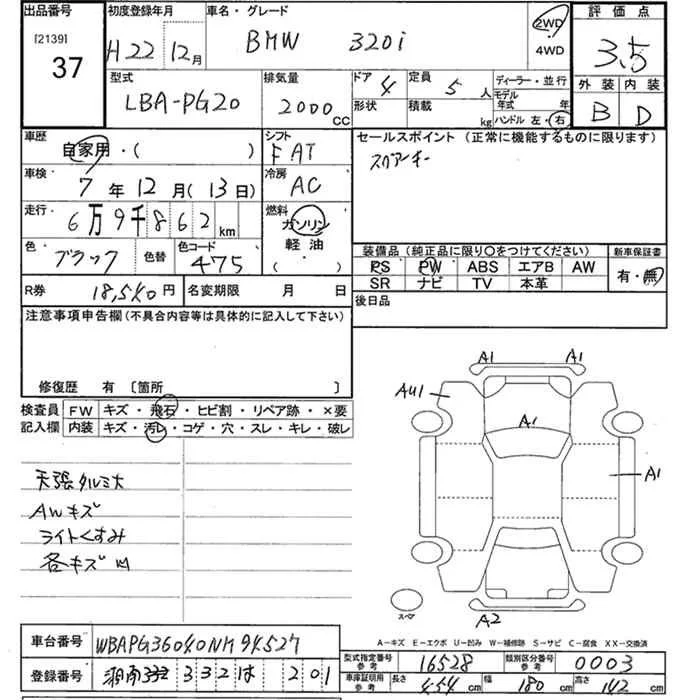 出品番号 初度登録年月 車名・グレード 評価点
[2139] 37 H22 12月 BMW 320i 2WD 4WD 3.5
型式 排気量 ドア 4 定員 5人 ディーラー・並行 外装 内装
LBA-PG20 2000cc 形状 積載 kg モデル年式 年 ハンドル 左・右 B D
車歴 自家用・( ) シフト FAT セールスポイント (正常に機能するものに限ります)
車検 7年12月(13日) 冷房 AC スペアキー
走行 6万9千862km 燃料 ガソリン 軽油 ( )
色 ブラック 色替 色コード 475 装備品(純正品に限り○をつけてください) 新車保証書
PS PW ABS エアB AW 有・無
R券 18,540円 名変期限 月 日 SR ナビ TV 本革
注意事項申告欄(不具合内容等は具体的に記入して下さい) 後日品
修復歴 有 〔箇所 〕
検査員 FW キズ・飛石・ヒビ割・リペア跡・×要
記入欄 内装 キズ・汚レ・コゲ・穴・スレ・キレ・破レ
A1 A1
AU1
A1
A1
天張タルミ大
AWキズ
ライトくすみ
各キズ凹
スペア
A2
A−キズ E−エクボ U−凹み W−補修跡 S−サビ C−腐食 XX−交換済
車台番号 WBAPG36040NM94527 型式指定番号 参考 16528 類別区分番号 参考 0003
登録番号 湘南332 332 は 201 車庫証明用 参考 長さ 454cm 幅 180cm 高さ 142cm